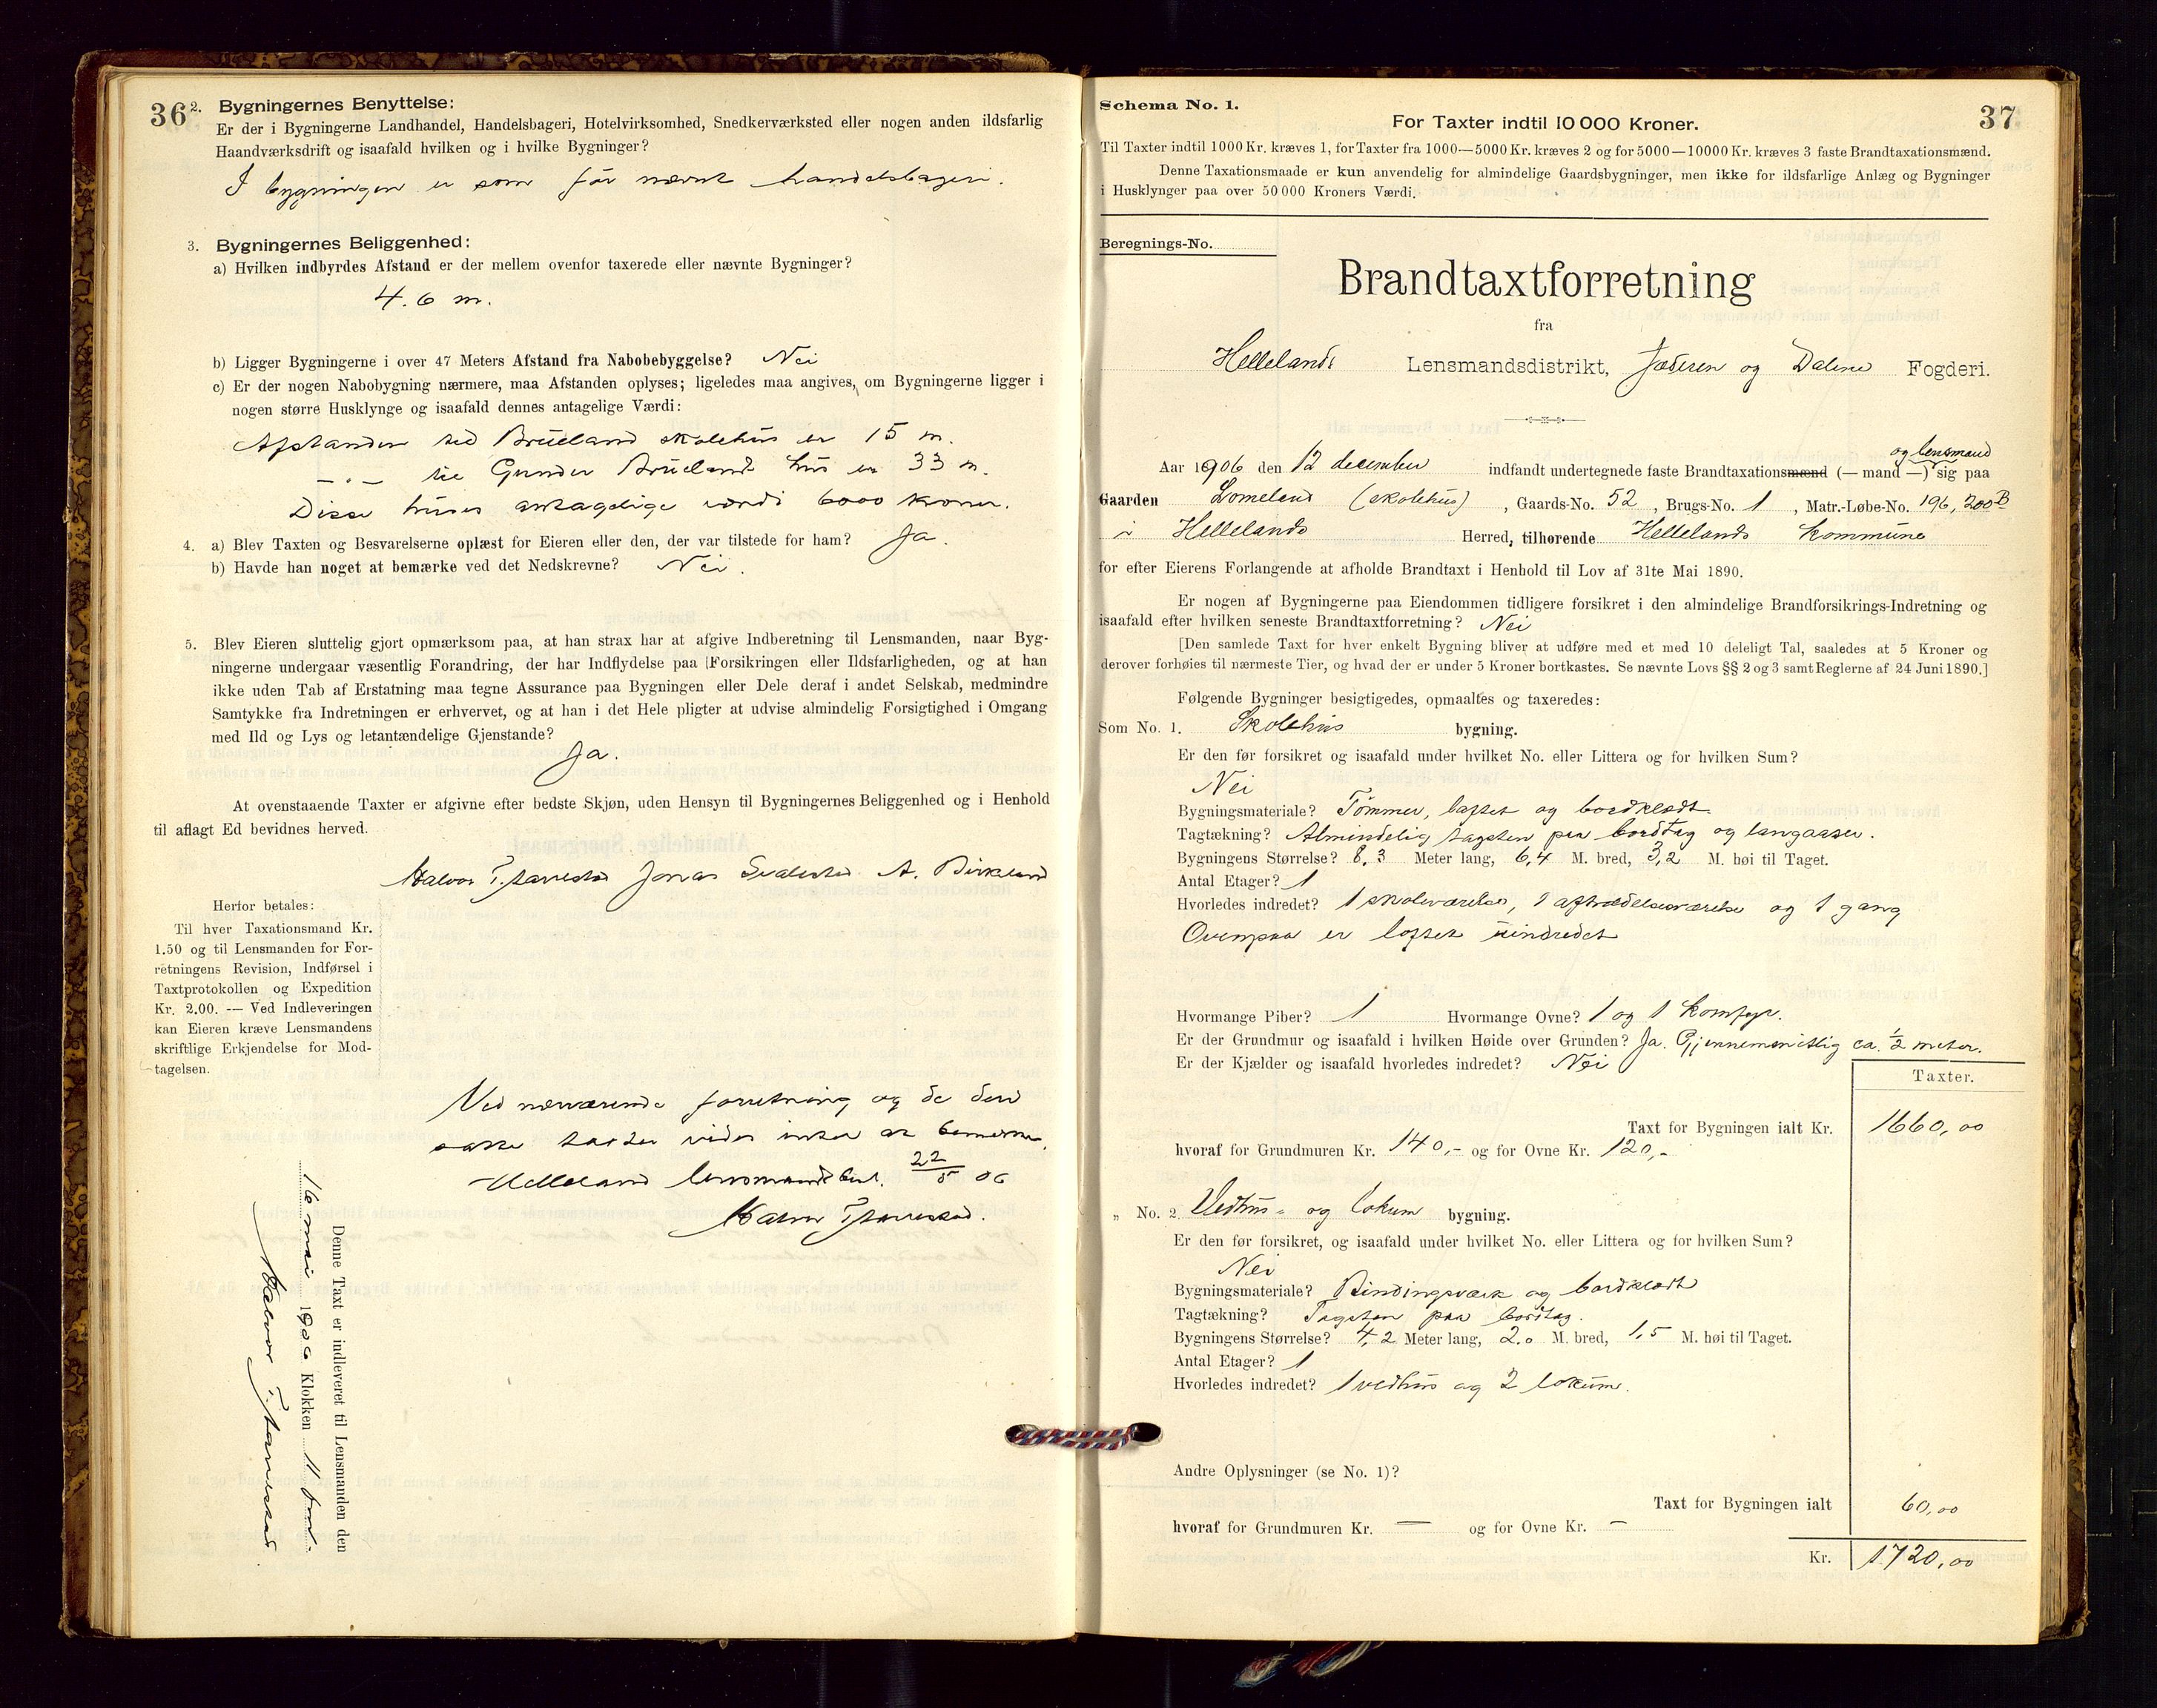 36
2. Bygningernes Benyttelse:
Er der i Bygningerne Landhandel, Handelsbageri, Hotelvirksomhed, Snedkerværksted eller nogen anden ildsfarlig
Haandværksdrift og isaafald hvilken og i hvilke Bygninger?
I bygningen er som før nævnt handelsbageri.
3. Bygningernes Beliggenhed:
a) Hvilken indbyrdes Afstand er der mellem ovenfor taxerede eller nævnte Bygninger?
4.6 m.
b) Ligger Bygningerne i over 47 Meters Afstand fra Nabobebyggelse? Nei
c) Er der nogen Nabobygning nærmere, maa Afstanden oplyses; ligeledes maa angives, om Bygningerne ligger i
nogen større Husklynge og isaafald dennes antagelige Værdi:
Afstanden ved Brueland skolehus er 15 m.
— " — til Gunder Bruelands hus er 33 m.
Disse huses antagelige værdi 6000 kroner.
4. a) Blev Taxten og Besvarelserne oplæst for Eieren eller den, der var tilstede for ham? Ja.
b) Havde han noget at bemærke ved det Nedskrevne? Nei.
5. Blev Eieren sluttelig gjort opmærksom paa, at han strax har at afgive Indberetning til Lensmanden, naar Byg-
ningerne undergaar væsentlig Forandring, der har Indflydelse paa Forsikringen eller Ildsfarligheden, og at han
ikke uden Tab af Erstatning maa tegne Assurance paa Bygningen eller Dele deraf i andet Selskab, medmindre
Samtykke fra Indretningen er erhvervet, og at han i det Hele pligter at udvise almindelig Forsigtighed i Omgang
med Ild og Lys og letantændelige Gjenstande?
Ja.
At ovenstaaende Taxter er afgivne efter bedste Skjøn, uden Hensyn til Bygningernes Beliggenhed og i Henhold
til aflagt Ed bevidnes herved.
Halvor Jonas A. Birkeland
Herfor betales:
Til hver Taxationsmand Kr.
1.50 og til Lensmanden for For-
retningens Revision, Indførsel i
Taxtprotokollen og Expedition
Kr. 2.00. — Ved Indleveringen
kan Eieren kræve Lensmandens
skriftlige Erkjendelse for Mod-
tagelsen.
Ved nærværende forretning og de deri
satte taxter vides intet at bemerke.
Helleland lensmandsbest. 22/5 06
Halvor
Denne Taxt er indleveret til Lensmanden den
16 mai 1906 Klokken 11 form.
Halvor
Schema No. 1.
37
For Taxter indtil 10 000 Kroner.
Til Taxter indtil 1000 Kr. kræves 1, for Taxter fra 1000—5000 Kr. kræves 2 og for 5000—10000 Kr. kræves 3 faste Brandtaxationsmænd.
Denne Taxationsmaade er kun anvendelig for almindelige Gaardsbygninger, men ikke for ildsfarlige Anlæg og Bygninger
i Husklynger paa over 50 000 Kroners Værdi.
Beregnings-No.
Brandtaxtforretning
fra
Hellelands Lensmandsdistrikt, Jæderen og Dalene Fogderi.
og lensmand
Aar 1906 den 12 december indfandt undertegnede faste Brandtaxationsmænd (— mand —) sig paa
Gaarden Lomeland (skolehus), Gaards-No. 52, Brugs-No. 1, Matr.-Løbe-No. 196, 200B
i Hellelands Herred, tilhørende Hellelands kommune
for efter Eierens Forlangende at afholde Brandtaxt i Henhold til Lov af 31te Mai 1890.
Er nogen af Bygningerne paa Eiendommen tidligere forsikret i den almindelige Brandforsikrings-Indretning og
isaafald efter hvilken seneste Brandtaxtforretning? Nei
[Den samlede Taxt for hver enkelt Bygning bliver at udføre med et med 10 deleligt Tal, saaledes at 5 Kroner og
derover forhøies til nærmeste Tier, og hvad der er under 5 Kroner bortkastes. Se nævnte Lovs §§ 2 og 3 samt Reglerne af 24 Juni 1890.]
Følgende Bygninger besigtigedes, opmaaltes og taxeredes:
Som No. 1. Skolehus bygning.
Er den før forsikret og isaafald under hvilket No. eller Littera og for hvilken Sum?
Nei
Bygningsmateriale? Tømmer, laftet og bordklædt.
Tagtækning? Almindelig tagsten paa bordtag og langaaser.
Bygningens Størrelse? 8,3 Meter lang, 6,4 M. bred, 3,2 M. høi til Taget.
Antal Etager? 1
Hvorledes indredet? 1 skoleværelse, 1 aftrædelsesværelse og 1 gang
Ovenpaa er loftet uindredet
Hvormange Piber? 1 Hvormange Ovne? 1 og 1 komfyr.
Er der Grundmur og isaafald i hvilken Høide over Grunden? Ja. Gjennemsnitlig ca. ½ meter.
Er der Kjælder og isaafald hvorledes indredet? Nei
Taxter.
Taxt for Bygningen ialt Kr. 1660,00
hvoraf for Grundmuren Kr. 140,- og for Ovne Kr. 120,-
„ No. 2 Vedhus- og lokum bygning.
Er den før forsikret, og isaafald under hvilket No. eller Littera og for hvilken Sum?
Nei
Bygningsmateriale? Bindingsværk og bordklædt
Tagtækning? Tagsten paa bordtag.
Bygningens Størrelse? 4,2 Meter lang, 2.0 M. bred, 1,5 M. høi til Taget.
Antal Etager? 1
Hvorledes indredet? 1 vedhus og 2 lokum.
Andre Oplysninger (se No. 1)?
Taxt for Bygningen ialt 60,00
hvoraf for Grundmuren Kr. — og for Ovne Kr. —
Kr. 1720,00